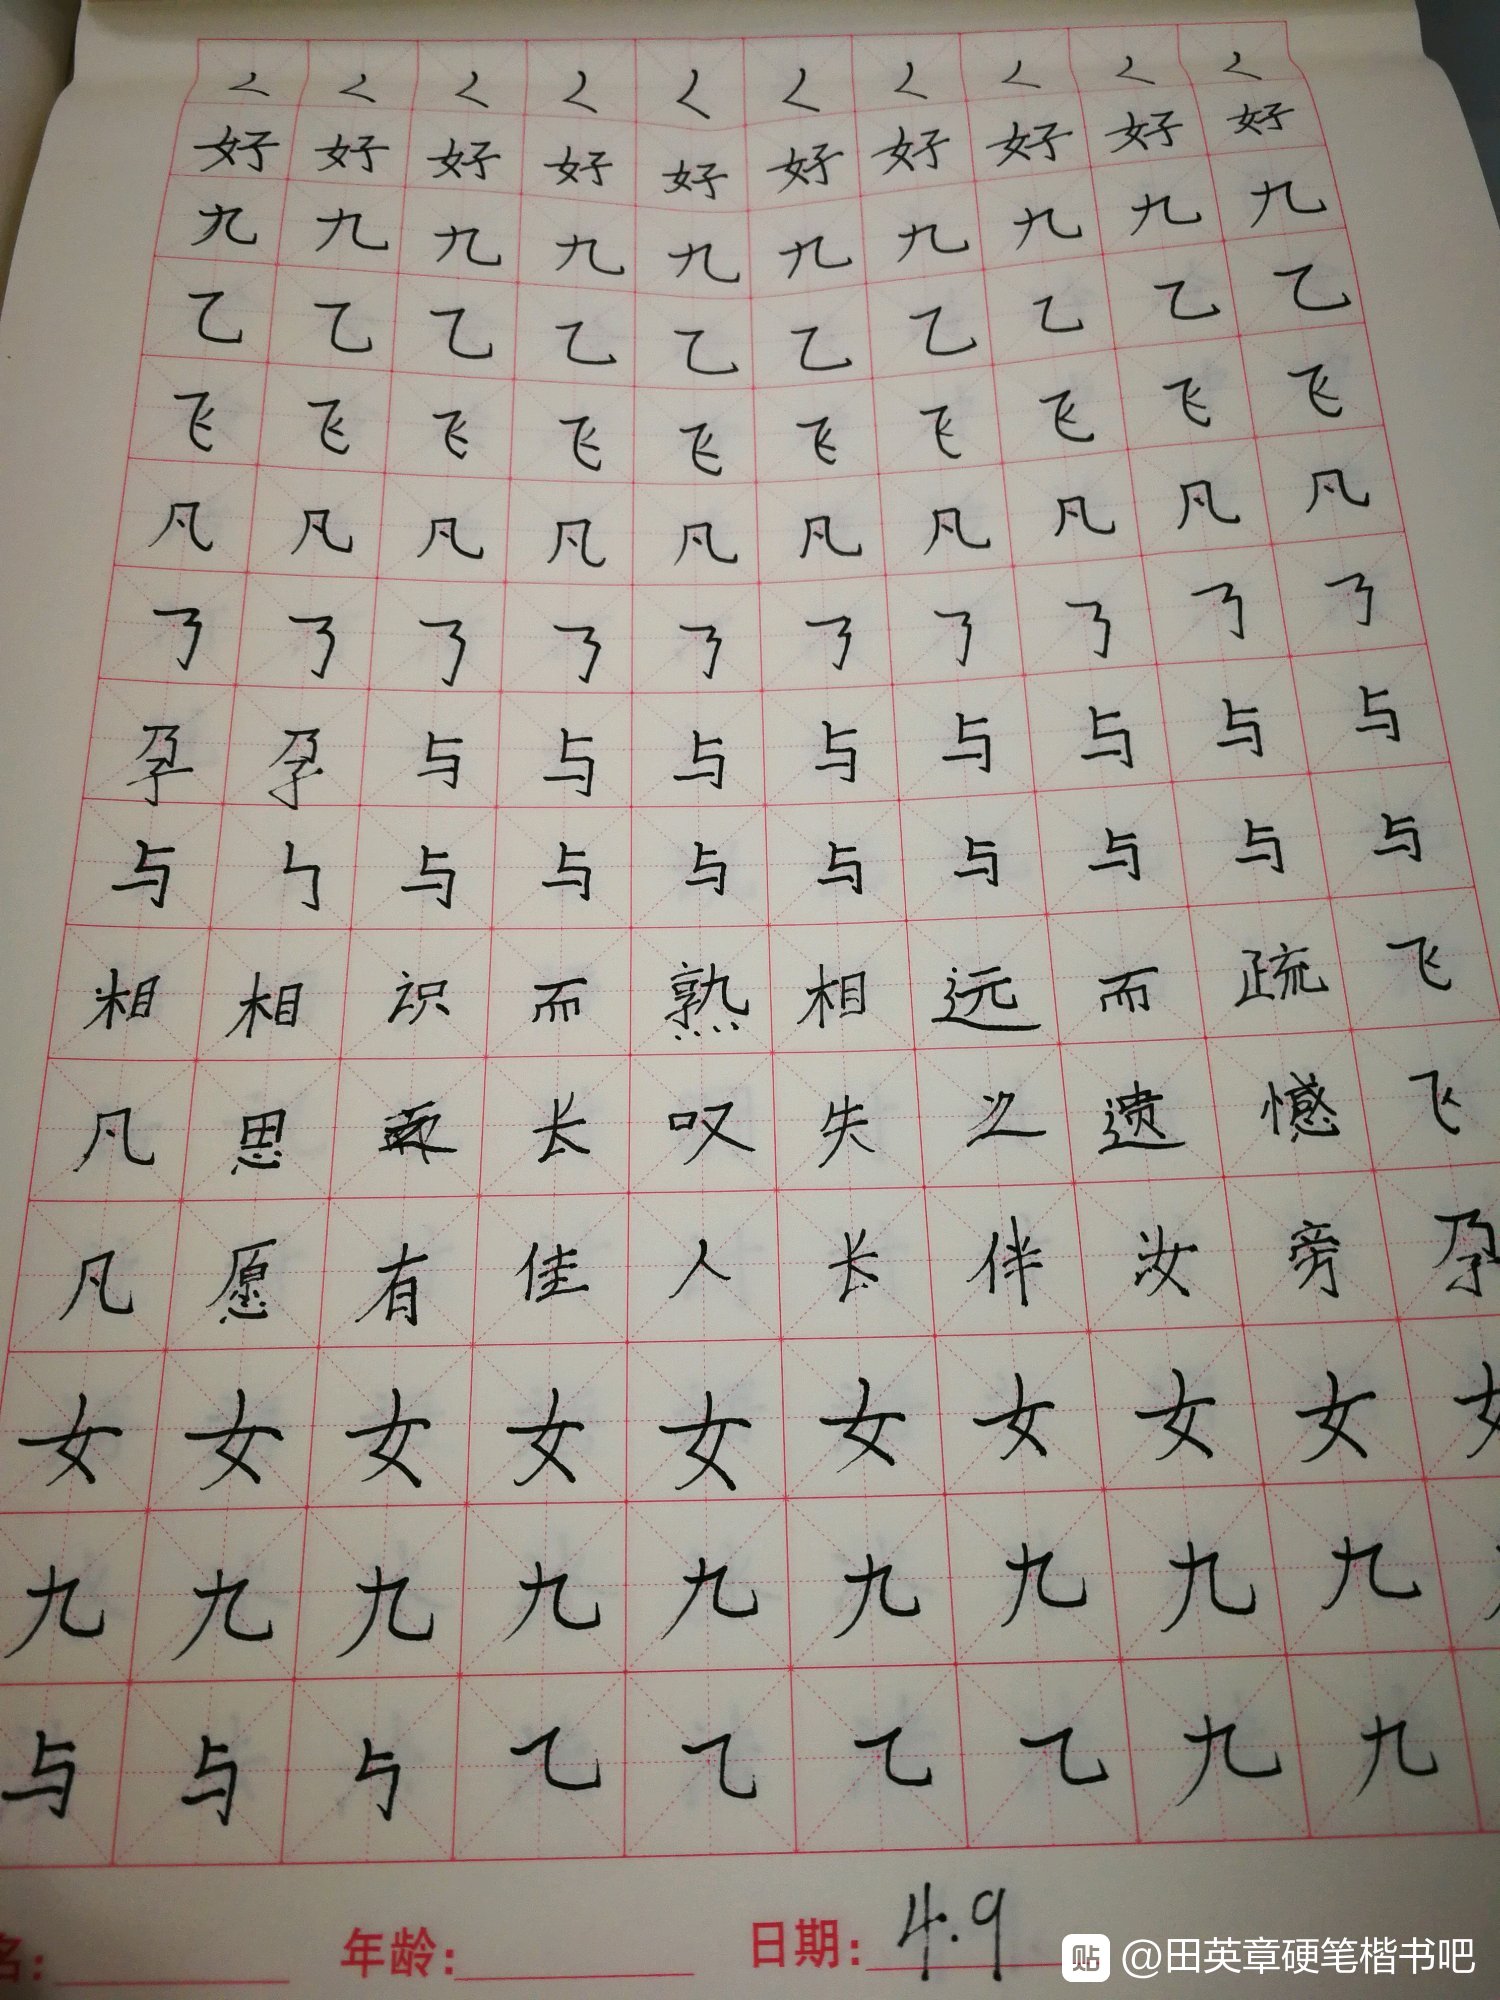 ㄑㄑㄑㄑㄑㄑㄑㄑㄑㄑ
好好好好好好好好好好
九九九九九九九九九九
乙乙乙乙乙乙乙乙乙乙
飞飞飞飞飞飞飞飞飞飞
凡凡凡凡凡凡凡凡凡凡
孕孕与与与与与与与与
与与与与与与与与与
相相识而熟相远而疏飞
凡思长叹失之遗憾飞
凡愿有佳人长伴汝旁孕
女女女女女女女女女女
九九九九九九九九九
与与乙乙乙乙九九
名: 年龄: 日期: 4.9
贴 @田英章硬笔楷书吧